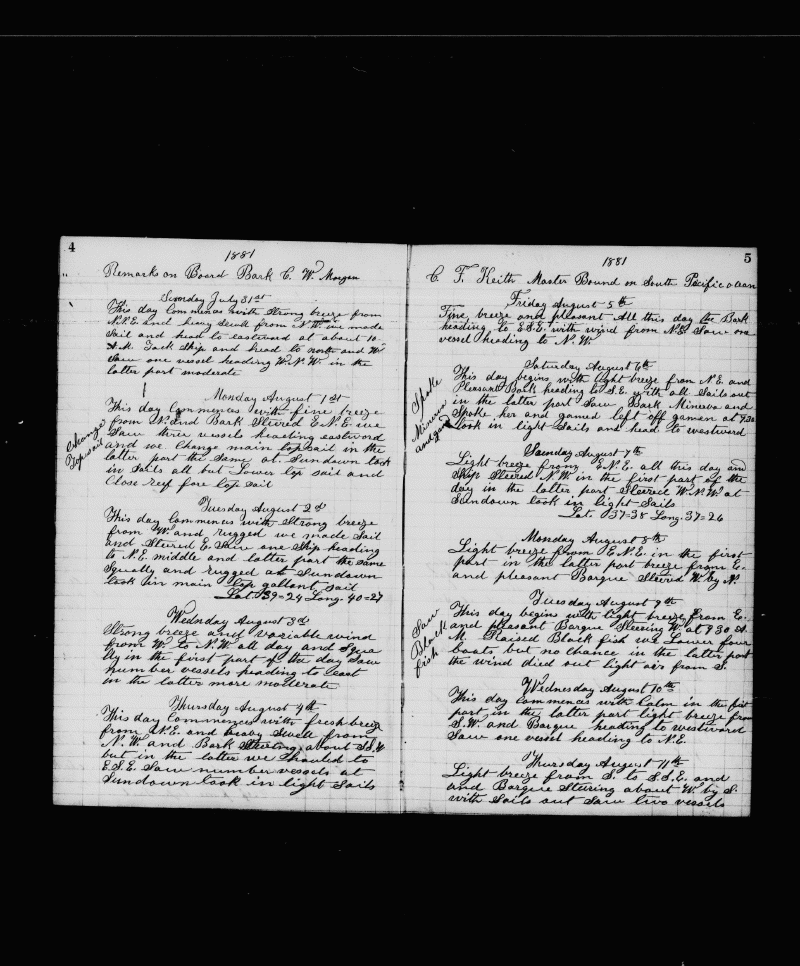 4
1881
Remarks on Board Bark C. W. Morgan
Sunday July 31st
This day Commences with Strong breeze from
N.N.E. and heavy Swell from N.W. we made
Sail and head to eastward at about 10
A.M. Tack Ship and head to north and W
Saw one vessel heading W.N.W. in the
latter part moderate
Monday August 1st
Change
Top sail
This day Commences with fine breeze
from W. and Bark Steered E.N.E. we
Saw three vessels heading eastward
and we Change main top sail in the
latter part the Same at Sundown took
in Sails all but Lower top sail and
Close reef fore top sail
Tuesday August 2d
This day Commences with Strong breeze
from W. and rugged we made Sail
and Steered E. Saw one Ship heading
to N.E. middle and latter part the same
Squally and rugged at Sundown
took in main top gallant sail
Lat. 39=24 Long. 40=27
Wednsday August 3d
Strong breeze and variable wind
from W. to N.W. all day and Squa
lly in the first part of the day Saw
number vessels heading to east
in the latter more moderate
Thursday August 4th
This day Commences with fresh breeze
from N.E. and heavy Swell from
N.W. and Bark Stering about S.S.W
but in the latter we hauled to
E.S.E. Saw number vessels at
Sundown took in light Sails
5
1881
C. F. Keith Master Bound on South Pacific ocean
Friday August 5th
Fine breeze and pleasant All this day the Bark
heading to E.S.E. with wind from N.E. Saw one
vessel heading to N.W.
Saturday August 6th
Spoke
Minerva
and gam
This day begins with light breeze from N.E. and
Pleasant Bark heading to S.E. with all Sails out
in the latter part Saw Bark Minerva and
Spoke her and gamed left off gamen at 9.30
took in light Sails and head to westward
Sunday August 7th
Light breeze from E.N.E. all this day and
Ship Steered N.W. in the first part of the
day in the latter part Steered W.N.W. at
Sundown took in light Sails
Lat. 37=38 Long. 37=26
Monday August 8th
Light breeze from E.N.E. in the first
part in the latter part breeze from E.
and pleasant Barque Steered W. by N.
Tuesday August 9th
Saw
Black
fish
This day begins with light breeze from E.
and pleasant Barque Steering W. at 9 30 A.
M. Raised Black fish we Lower four
boats but no chance in the latter part
the wind died out light air from S.
Wednesday August 10th
This day Commences with Calm in the first
part in the latter part light breeze from
S.W. and Barque heading to westward
Saw one vessel heading to N.E.
Thursday August 11th
Light breeze from S. to S.S.E. and
and Barque Stering about W. by S.
with Sails out Saw two vessels